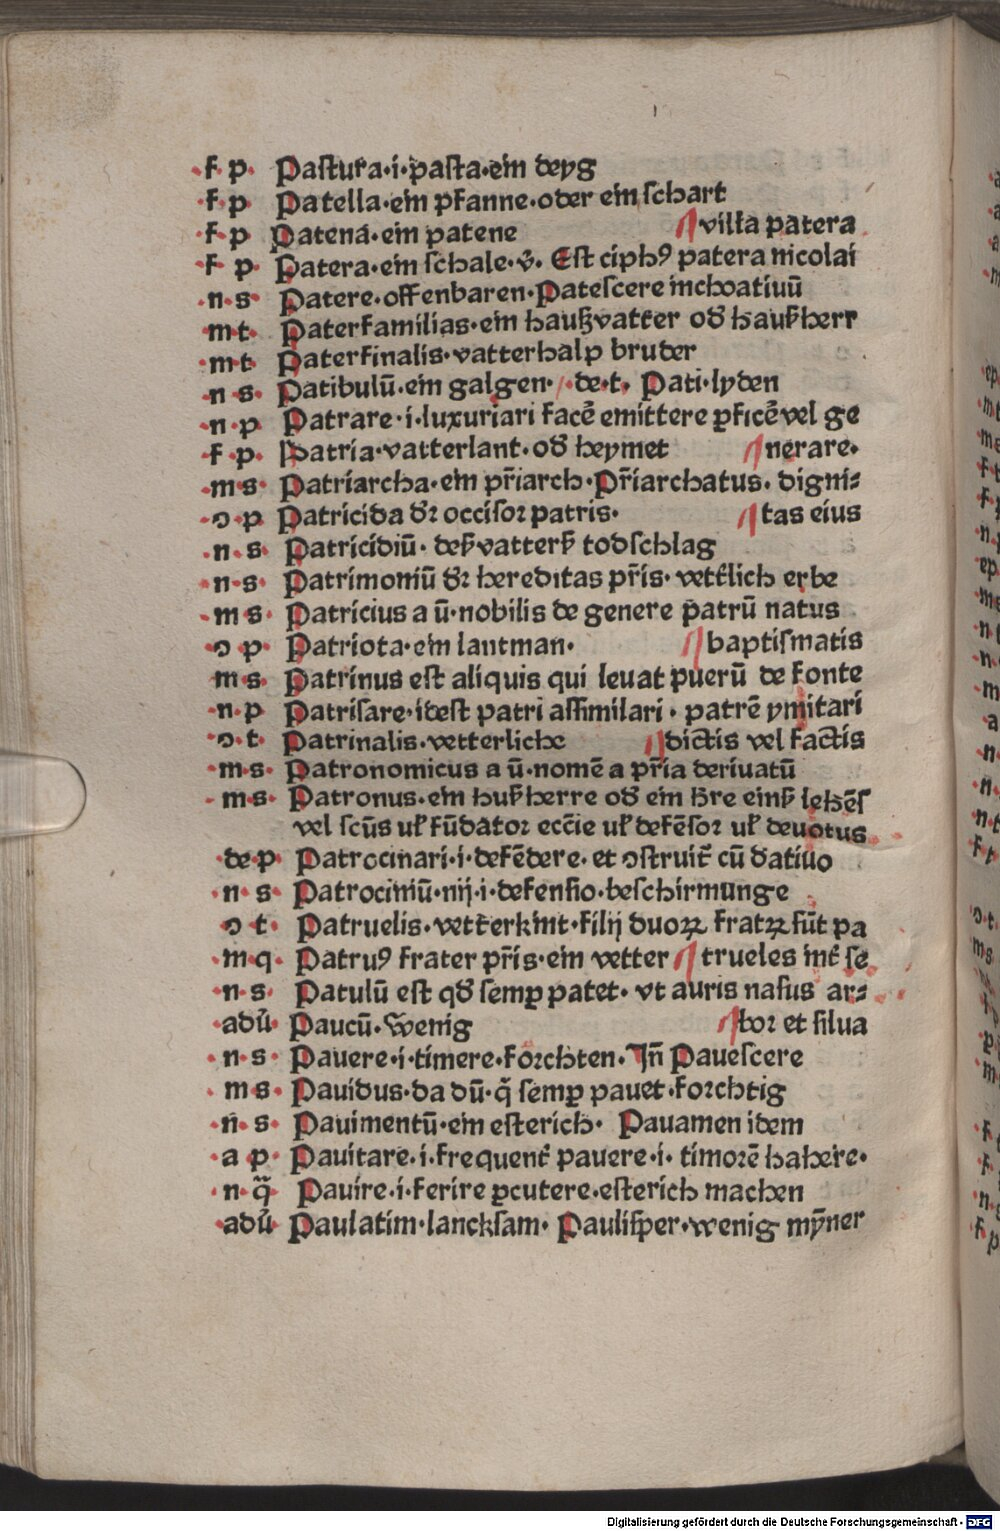 ·f·p· Paſtura·i·paſta·ein deyg
·f·p Patella·ein pfanne·oder ein ſchart
·f·p Patena·ein patene ¶villa patera
·f p· Patera·ein ſchale·v̄· Eſt ciphꝰ patera nicolai
·n·s· Patere·offenbaren·Pateſcere inchoatiuū
·m·t· Paterfamilias·ein haußvatter od̄ haußherr
·m·t· Paterfinalis·vatterhalp bruder
·n s· Patibulū·ein galgen· de·t· Pati·lyden
·n·p Patrare·i·luxuriari facē emittere ꝑficē vel ge
f·p· Patria·vatterlant·od̄ heymet ¶nerare·
·m·s· Patriarcha·ein pr̄iarch·Pr̄iarchatus·digni⸗
·ↄ·p Patricida dr̄ occiſoꝛ patris· ¶tas eius
·n·s· Patricidiū·deß vatterß todſchlag
·n·s· Patrimoniū dr̄ hereditas pr̄is·vett̄lich erbe
·m s· Patricius a ū·nobilis de genere patrū natus
·ↄ p· Patriota·ein lantman· ¶baptiſmatis
m·s· Patrinus eſt aliquis qui leuat puerū de fonte
·n·p Patriſare·ideſt patri aſſimilari·patrē ymitari
·ↄ·t· Patrinalis·vetterliche ¶dictis vel factis
·m·s· Patronomicus a ū·nomē a pr̄ia deriuatū
·m·s· Patronus·ein hußherre od̄ ein h̄re einß lehēſ
vel ſcūs ul̄ fūdatoꝛ eccīe ul̄ defēſoꝛ ul̄ deuotus
de·p· Patrocinari·i·defēdere·et ↄſtruit̄ cū datiuo
·n·s· Patrociniū·nij·i·defenſio·beſchirmunge
ↄ t· Patruelis·vett̄erkint·filij duoꝝ fratꝝ ſūt pa
·m·q· Patruꝰ frater pr̄is·ein vetter ¶trueles int̄ ſe
·n·s· Patulū eſt qd̄ ſemꝑ patet·vt auris naſus ar⸗
·adū· Paucū·Wenig ¶boꝛ et ſilua
·n·s· Pauere·i·timere·foꝛchten·Jn̄ Paueſcere
m·s· Pauidus·da dū·q̄ ſemꝑ pauet·foꝛchtig
·n·s· Pauimentū·ein eſterich· Pauamen idem
·a p· Pauitare·i·frequent̄ pauere·i·timoꝛē habere·
·n·q̄· Pauire·i·ferire ꝑcutere·eſterich machen
·adū· Paulatim·lanckſam· Pauliſper·wenig mȳner
Digitalisierung gefördert durch die Deutsche Forschungsgemeinschaft - DFG